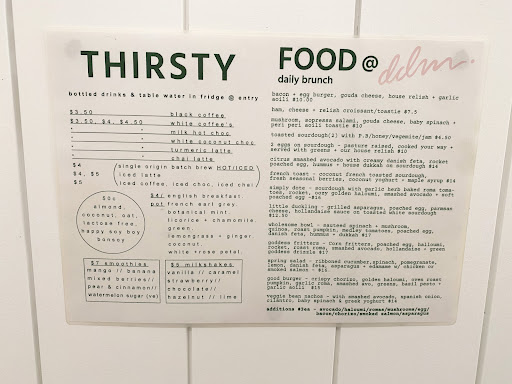 THIRSTY
bottled drinks & table water in fridge @ entry
$3.50 black coffee
$3.50, $4, $4.50 white coffee's
" " milk hot choc
" " white coconut choc
" " turmeric latte
" " chai latte
$4 single origin batch brew HOT/ICED
$4, $5 iced latte
$5 iced coffee, iced choc, iced chai
50c
almond,
coconut, oat,
lactose free,
happy soy boy
bonsoy
$4/ english breakfast.
pot french earl grey.
botanical mint.
licorice + chamomile.
green.
lemongrass + ginger.
coconut.
white rose petal
$7 smoothies
mango // banana
mixed berries//
pear & cinnamon//
watermelon sugar (ve)
$6 milkshakes
vanilla // caramel
strawberry//
chocolate//
hazelnut // lime
FOOD @ ddm.
daily brunch
bacon + egg burger, gouda cheese, house relish + garlic
aoili $10.00
ham, cheese + relish croissant/toastie $7.5
mushroom, sopressa salami, gouda cheese, baby spinach +
peri peri aoili toastie $10
toasted sourdough(2) with P.B/honey/vegemite/jam $6.50
2 eggs on sourdough - pasture raized, cooked your way +
served with greens + our house relish $10
citrus smashed avocado with creamy danish feta, rocket
poached egg, hummus + house dukkah on sourdough $16
french toast - coconut french toasted sourdough,
fresh seasonal berries, coconut yoghurt + maple syrup $14
simply dote - sourdough with garlic herb baked roma toma-
toes, rocket, oozy golden haloumi, smashed avocado + soft
poached egg -$16
little duckling - grilled asparagus, poached egg, parmesan
cheese, hollandaise sauce on toasted white sourdough
$12.50
wholesome bowl - sauteed spinach + mushroom,
quinoa, roast pumpkin, medley tomatoes, poached egg,
danish feta, hummus + dukkah $17
goddess fritters - Corn fritters, poached egg, haloumi,
rocket, roast roma, smashed avocado, hollandaise + green
goddess drizzle $17
spring salad - ribboned cucumber, spinach, pomegranate,
lemon, danish feta, asparagus + edamame w/ chicken or
smoked salmon - $15
good burger - crispy chorizo, golden haloumi, oven roast
pumpkin, garlic roma, smashed avo, greens, basil pesto +
garlic aoili $15
veggie bean nachos - with smashed avocado, spanish onion,
cilantro, baby spinach & greek yoghurt $14
additions $3ea - avocado/haloumi/romas/mushrooms/egg/
bacon/chorizo/smoked salmon/asparagus